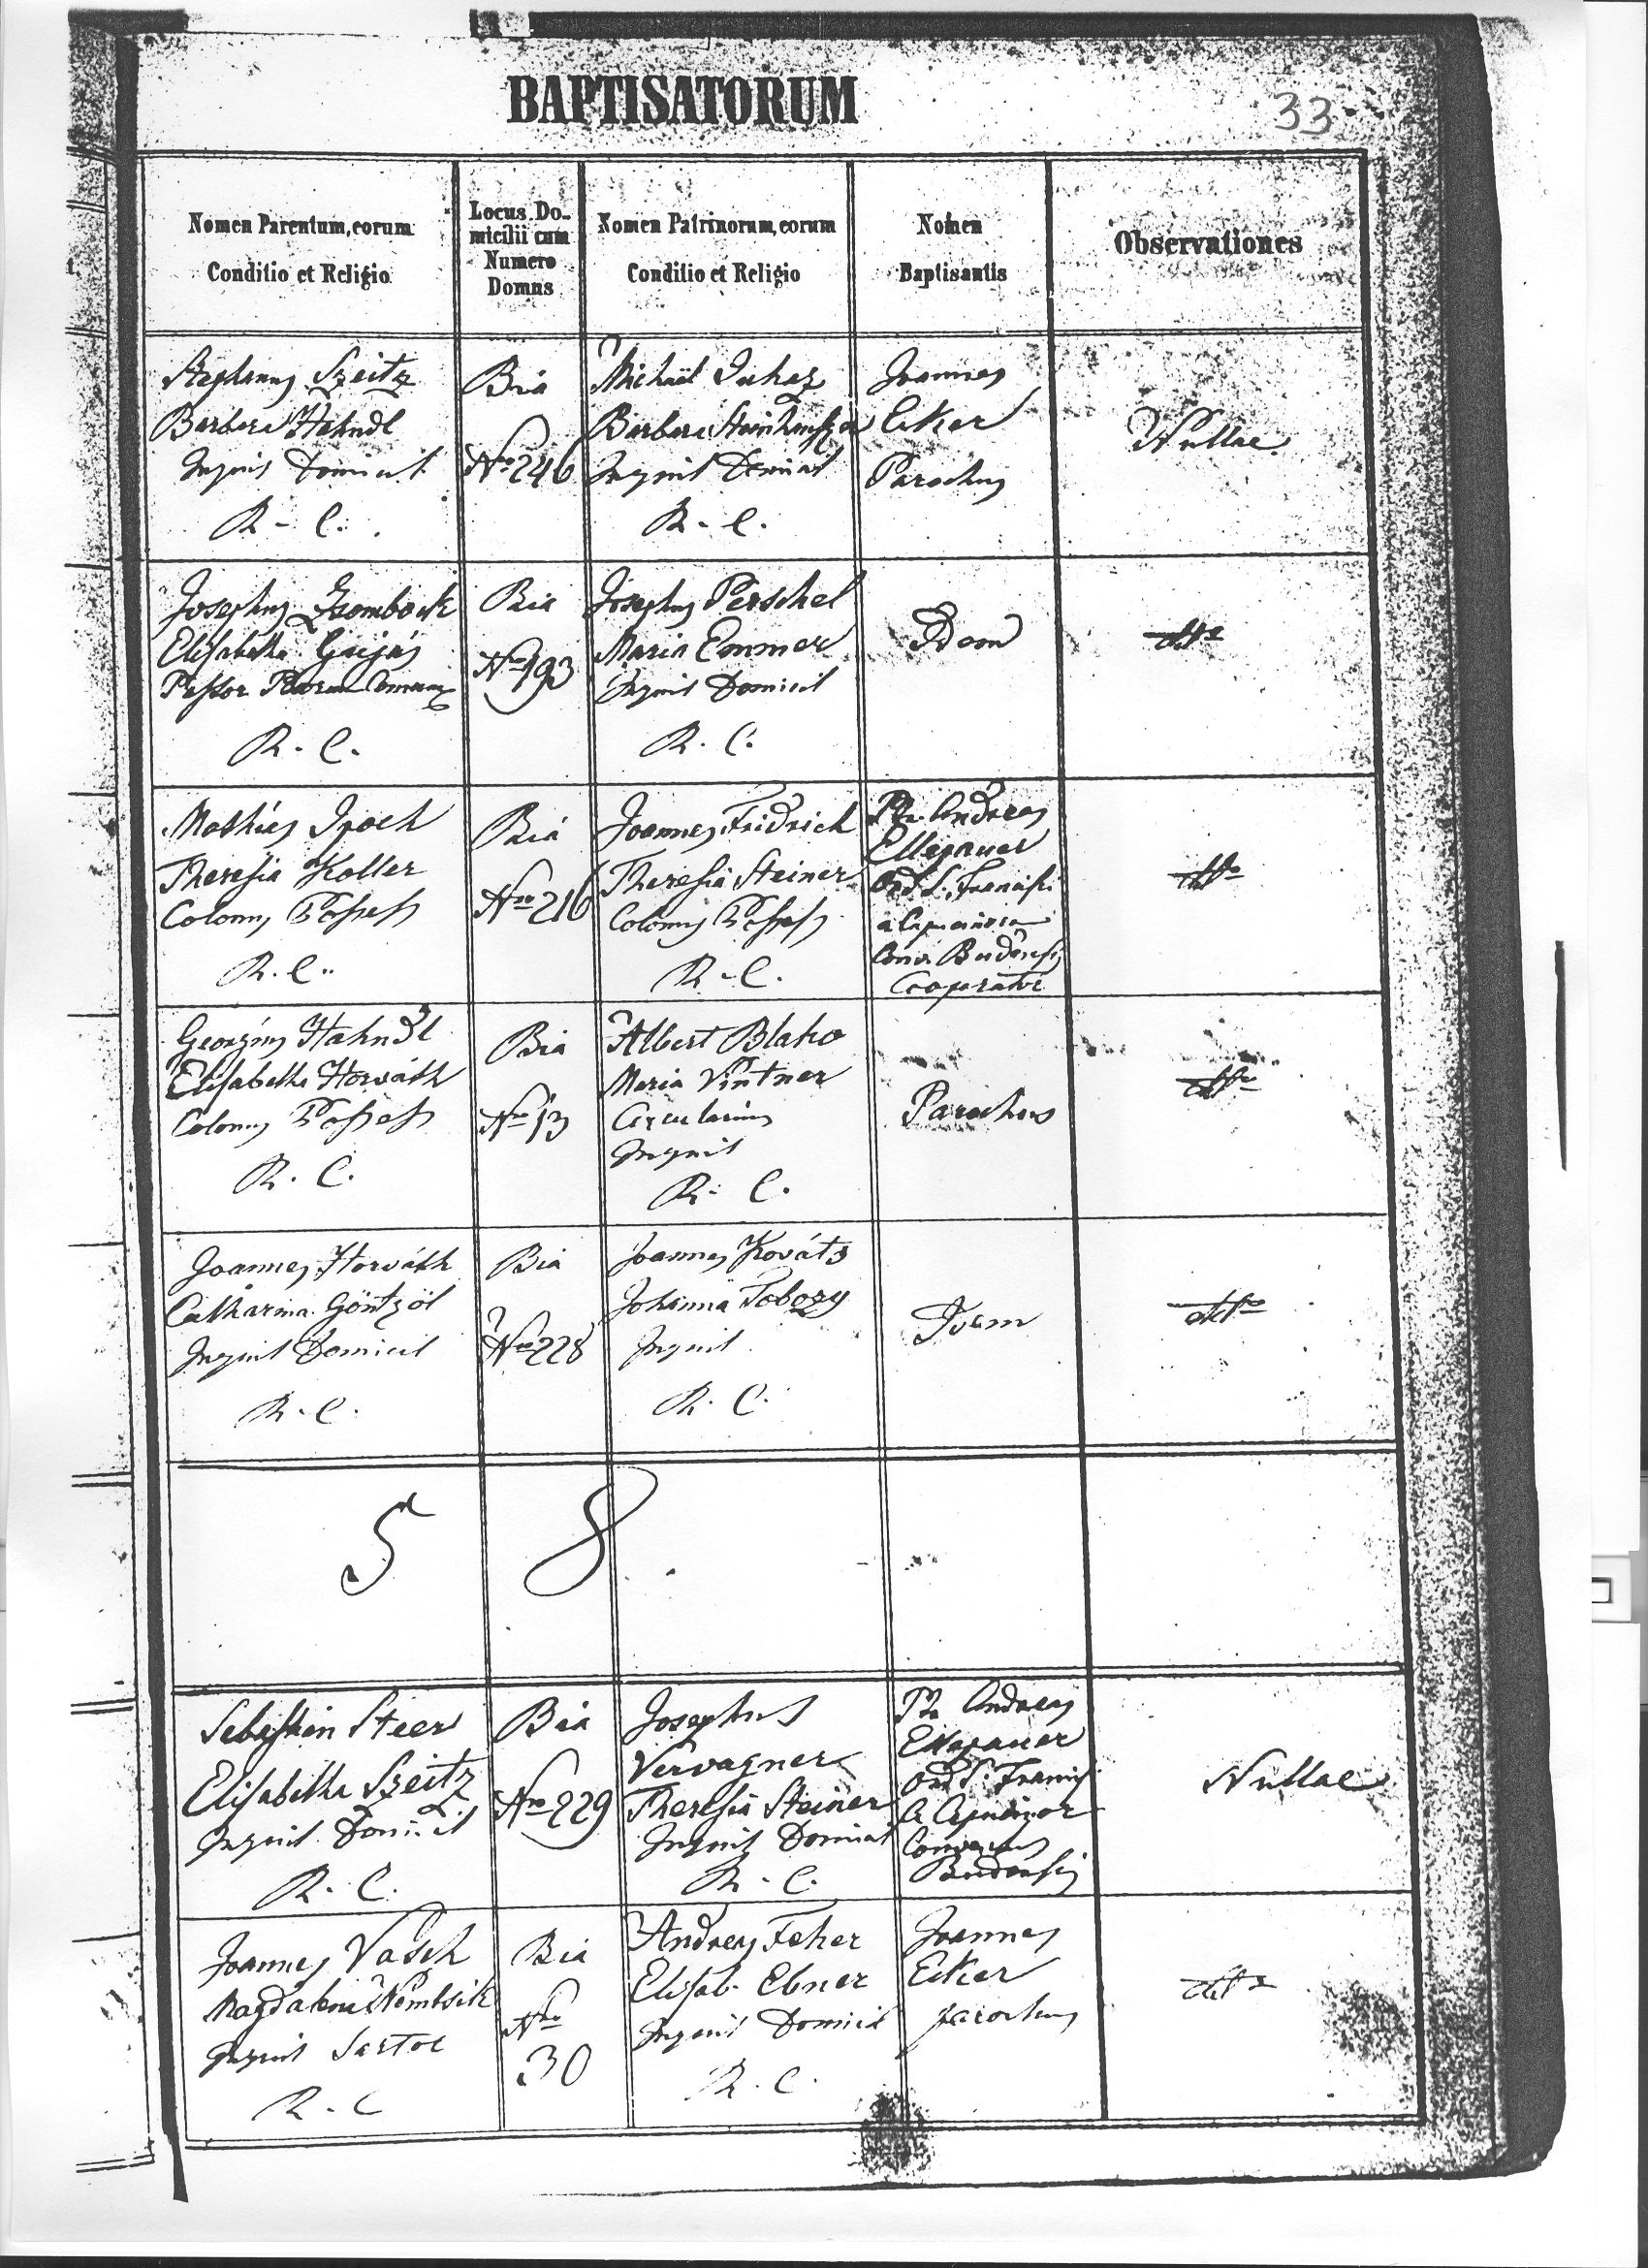 BAPTISATORUM
33
Nomen Parentum, eorum
Conditio et Religio
Locus Do-
micilii cum
Numero
Domus
Nomen Patrinorum, eorum
Conditio et Religio
Nomen
Baptisantis
Observationes
Stephanus Szeitz
Barbara Hahndl
Inquil Domicil
R. C.
Bia
Nro 246
Michael Juhaz
Barbara
Inquil Domicil
R. C.
Joannes
Eker
Parochus
Nullae
Josephus Zsombock
Elisabetha Gaijás
Pastor
R. C.
Bia
Nro 193
Josephus Perschel
Maria Emmer
Inquil Domicil
R. C.
Idem
dtto
Mathias Ipoch
Theresia Koller
Colonus Possess
R. C.
Bia
Nro 216
Joannes Fridrich
Theresia Steiner
Colonus Possess
R. C.
Pr. Andreas
Ellepauer
Ord. S. Francisci
a
Conv. Budensis
Cooperator
dtto
Georgius Hahndl
Elisabetha Horváth
Colonus Possess
R. C.
Bia
Nro 13
Albert Blaho
Maria Vintner
Circularius
Inquil
R. C.
Parochus
dtto
Joannes Horváth
Catharina Göntzöl
Inquil Domicil
R. C.
Bia
Nro 228
Joannes Kováts
Johanna Tobozy
Inquil
R. C.
Idem
dtto
5 8.
Sebastian Steer
Elisabetha Szeitz
Inquil Domicil
R. C.
Bia
Nro 229
Josephus
Vervagner
Theresia Steiner
Inquil Domicil
R. C.
Pr Andreas
Ellepauer
Ord S. Francis
Budensis
Nullae
Joannes Vasch
Magdalena
Inquil Sartor
R. C
Bia
Nro
30
Andreas Feher
Elisab. Ebner
Inquil Domicil
R. C.
Joannes
Ecker
parochus
dtto